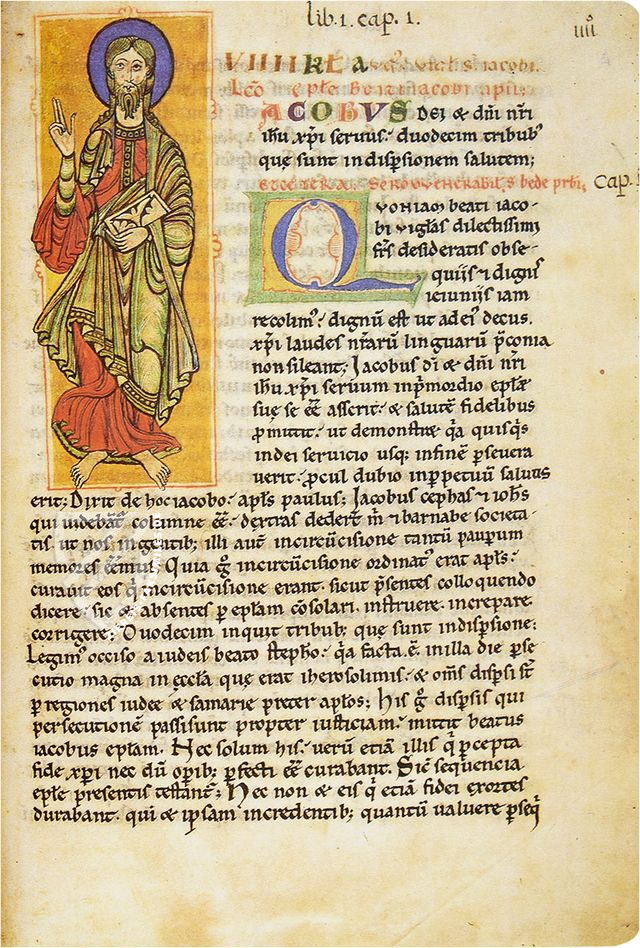 lib. 1. cap. 1.
iiii
VIIII kła a
Lcō eplē Beati iacobi apłi;
IACOBUS Dei & dñi nr̄i
ihu xp̄i seruus. duodecim tribub;
quę sunt in dispersionem salutem;
Sermo venerabilis bede prb̄i; Cap.
QVONIAM beati iaco-
bi vigłas dilectissimi
fr̄s desideratis obse-
quiis & dignis
ieiuniis iam
recolim᷒. dignū est ut ad ei᷒ decus.
xp̄i laudes nr̄arū linguarū p̄conia
non sileant; Iacobus dī & dñi nr̄i
ihu xp̄i seruum in p̄mordio eplę
suę se eē asserit. & salutē fidelibus
p̱mittit. ut demonstret q̄a quisq̄s
in dei servicio usq; in finē p̱seuera
uerit. p̱cul dubio in p̱petuū saluus
erit; Dixit de hoc iacobo. apłs paulus; Iacobus cephas & iohs
qui uidebant̄ columne eē. dextras dedert̄ m̄ & barnabe societa-
tis. ut nos in gentib; illi aut̄ in circūcisione tantū paupum
memores eēmus; Quia g̊ in circūcisione ordinat᷒ erat apłs.
curauit eos q̄ in circūcisione erant. sicut p̄sentes colloquendo
dicere. sic & absentes p̱ eplam cōsolari. instruere. increpare.
corrigere; Duodecim inquit tribub; quę sunt in disp̱sione;
Legim᷒ occiso a iudeis beato stepho. q̄a facta ē in illa die p̱se
cutio magna in eccła que erat iherosolimis. & om̄s disp̱si st̄
p̱ regiones iudee & samarie preter apłos; His g̊ disp̱sis qui
persecutionē passi sunt propter iusticiam. mittit beatus
iacobus eplam. Nec solum his. uerū etiā illis q̄ p̱cepta
fide xp̄i nec dū opib; p̱fecti eē curabant. Sic̄ seq̄uencia
eplę presentis testant̄; Nec non & eis q̄ etiā fidei exortes
durabant. qui & ip̄sam incredentib; quantū ualuere p̱seq̄